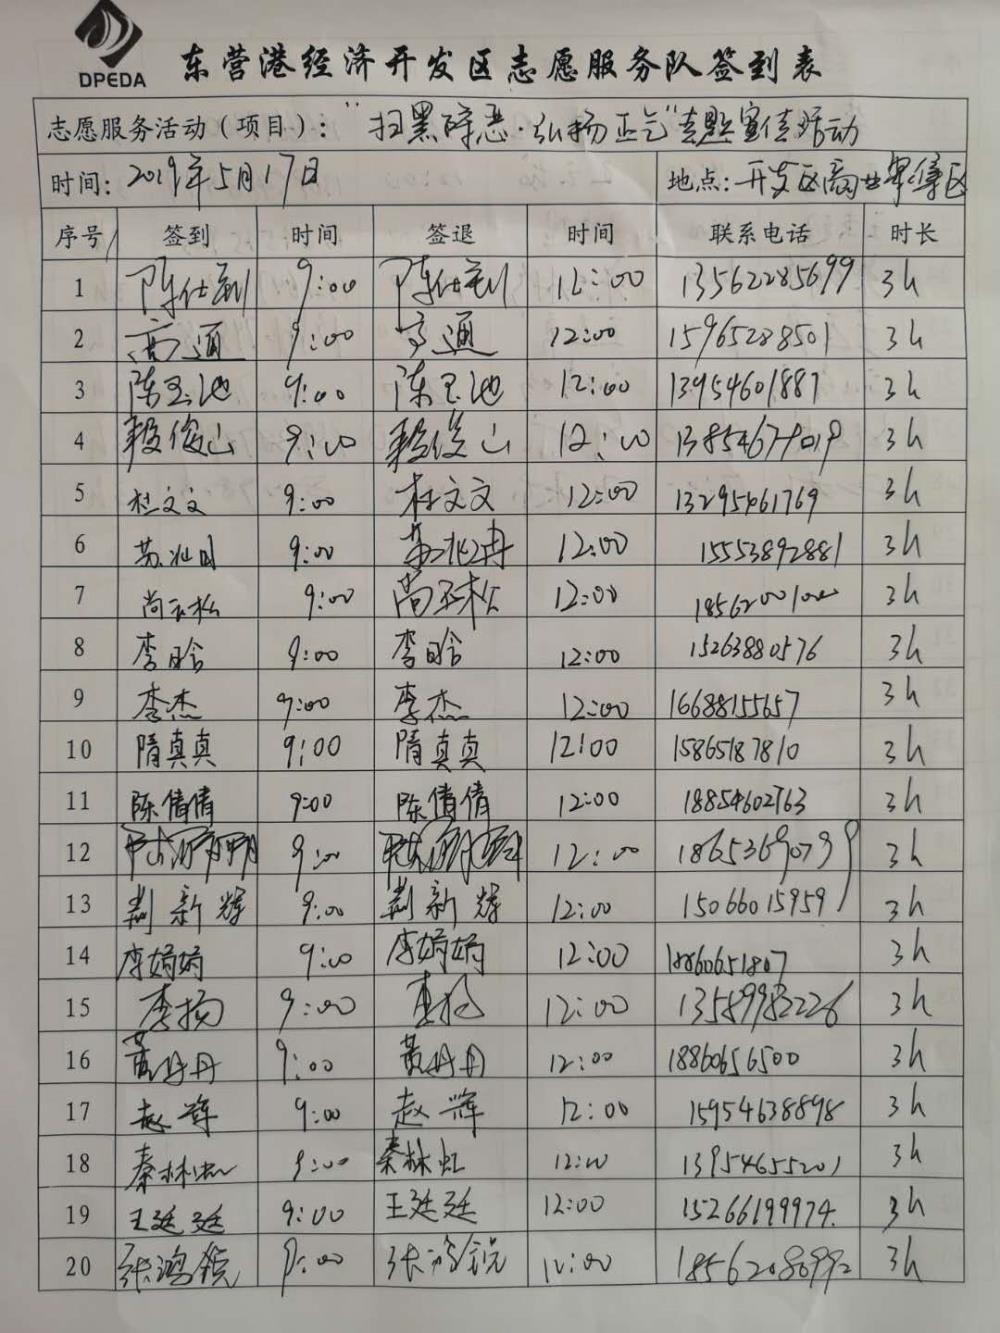 DPEDA
东营港经济开发区志愿服务队签到表
志愿服务活动（项目）：“扫黑除恶·弘扬正气”专题宣传活动
时间：2019年5月17日 地点：开发区商业聚集区
序号 签到 时间 签退 时间 联系电话 时长
1 陈仕刚 9:00 陈仕刚 12:00 13562285699 3h
2 高通 9:00 高通 12:00 15965288501 3h
3 陈玉池 9:00 陈玉池 12:00 13954601887 3h
4 俊山 9:00 俊山 12:00 3h
5 杜文文 9:00 杜文文 12:00 13295461769 3h
6 苏兆冉 9:00 苏兆冉 12:00 15553892881 3h
7 尚玉松 9:00 尚玉松 12:00 3h
8 李晗 9:00 李晗 12:00 15263880576 3h
9 李杰 9:00 李杰 12:00 16688155657 3h
10 隋真真 9:00 隋真真 12:00 15865187810 3h
11 陈倩倩 9:00 陈倩倩 12:00 18854602763 3h
12 9:00 12:00 18653690739 3h
13 新辉 9:00 新辉 12:00 15066015959 3h
14 李娟娟 9:00 李娟娟 12:00 18860651807 3h
15 李扬 9:00 李扬 12:00 13589982226 3h
16 黄丹丹 9:00 黄丹丹 12:00 18860656500 3h
17 赵辉 9:00 赵辉 12:00 15954638898 3h
18 秦林虹 9:00 秦林虹 12:00 13954655201 3h
19 王廷廷 9:00 王廷廷 12:00 15266199974 3h
20 张鸿锐 9:00 张鸿锐 12:00 18562086992 3h